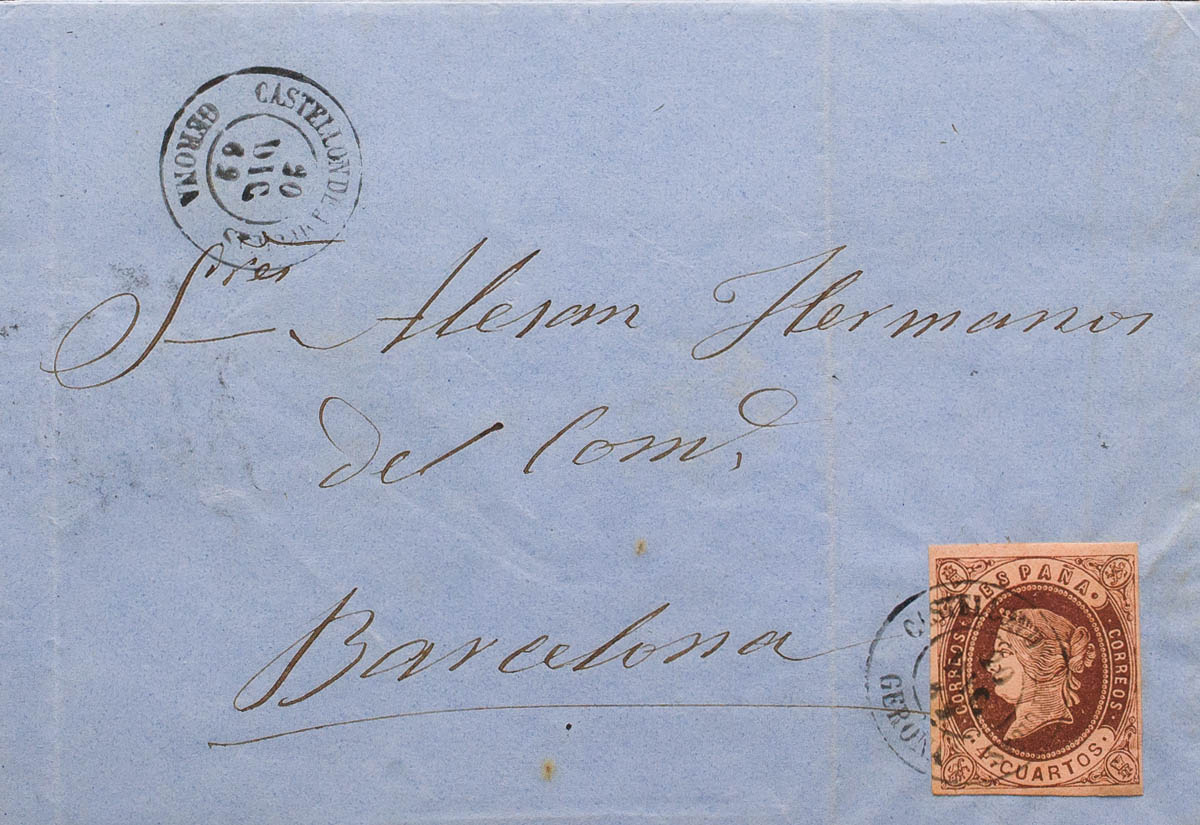 CASTELLON DE AMPURIAS
30
DIC
62
GERONA
Sres Alesan Hermanos
del Comº.
Barcelona
ESPAÑA
CORREOS
CORREOS
4 CUARTOS
GERONA